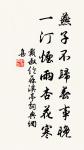 燕子不歸春事晚
一汀煙雨杏花寒
戴叔倫蘇溪亭詞典網
集